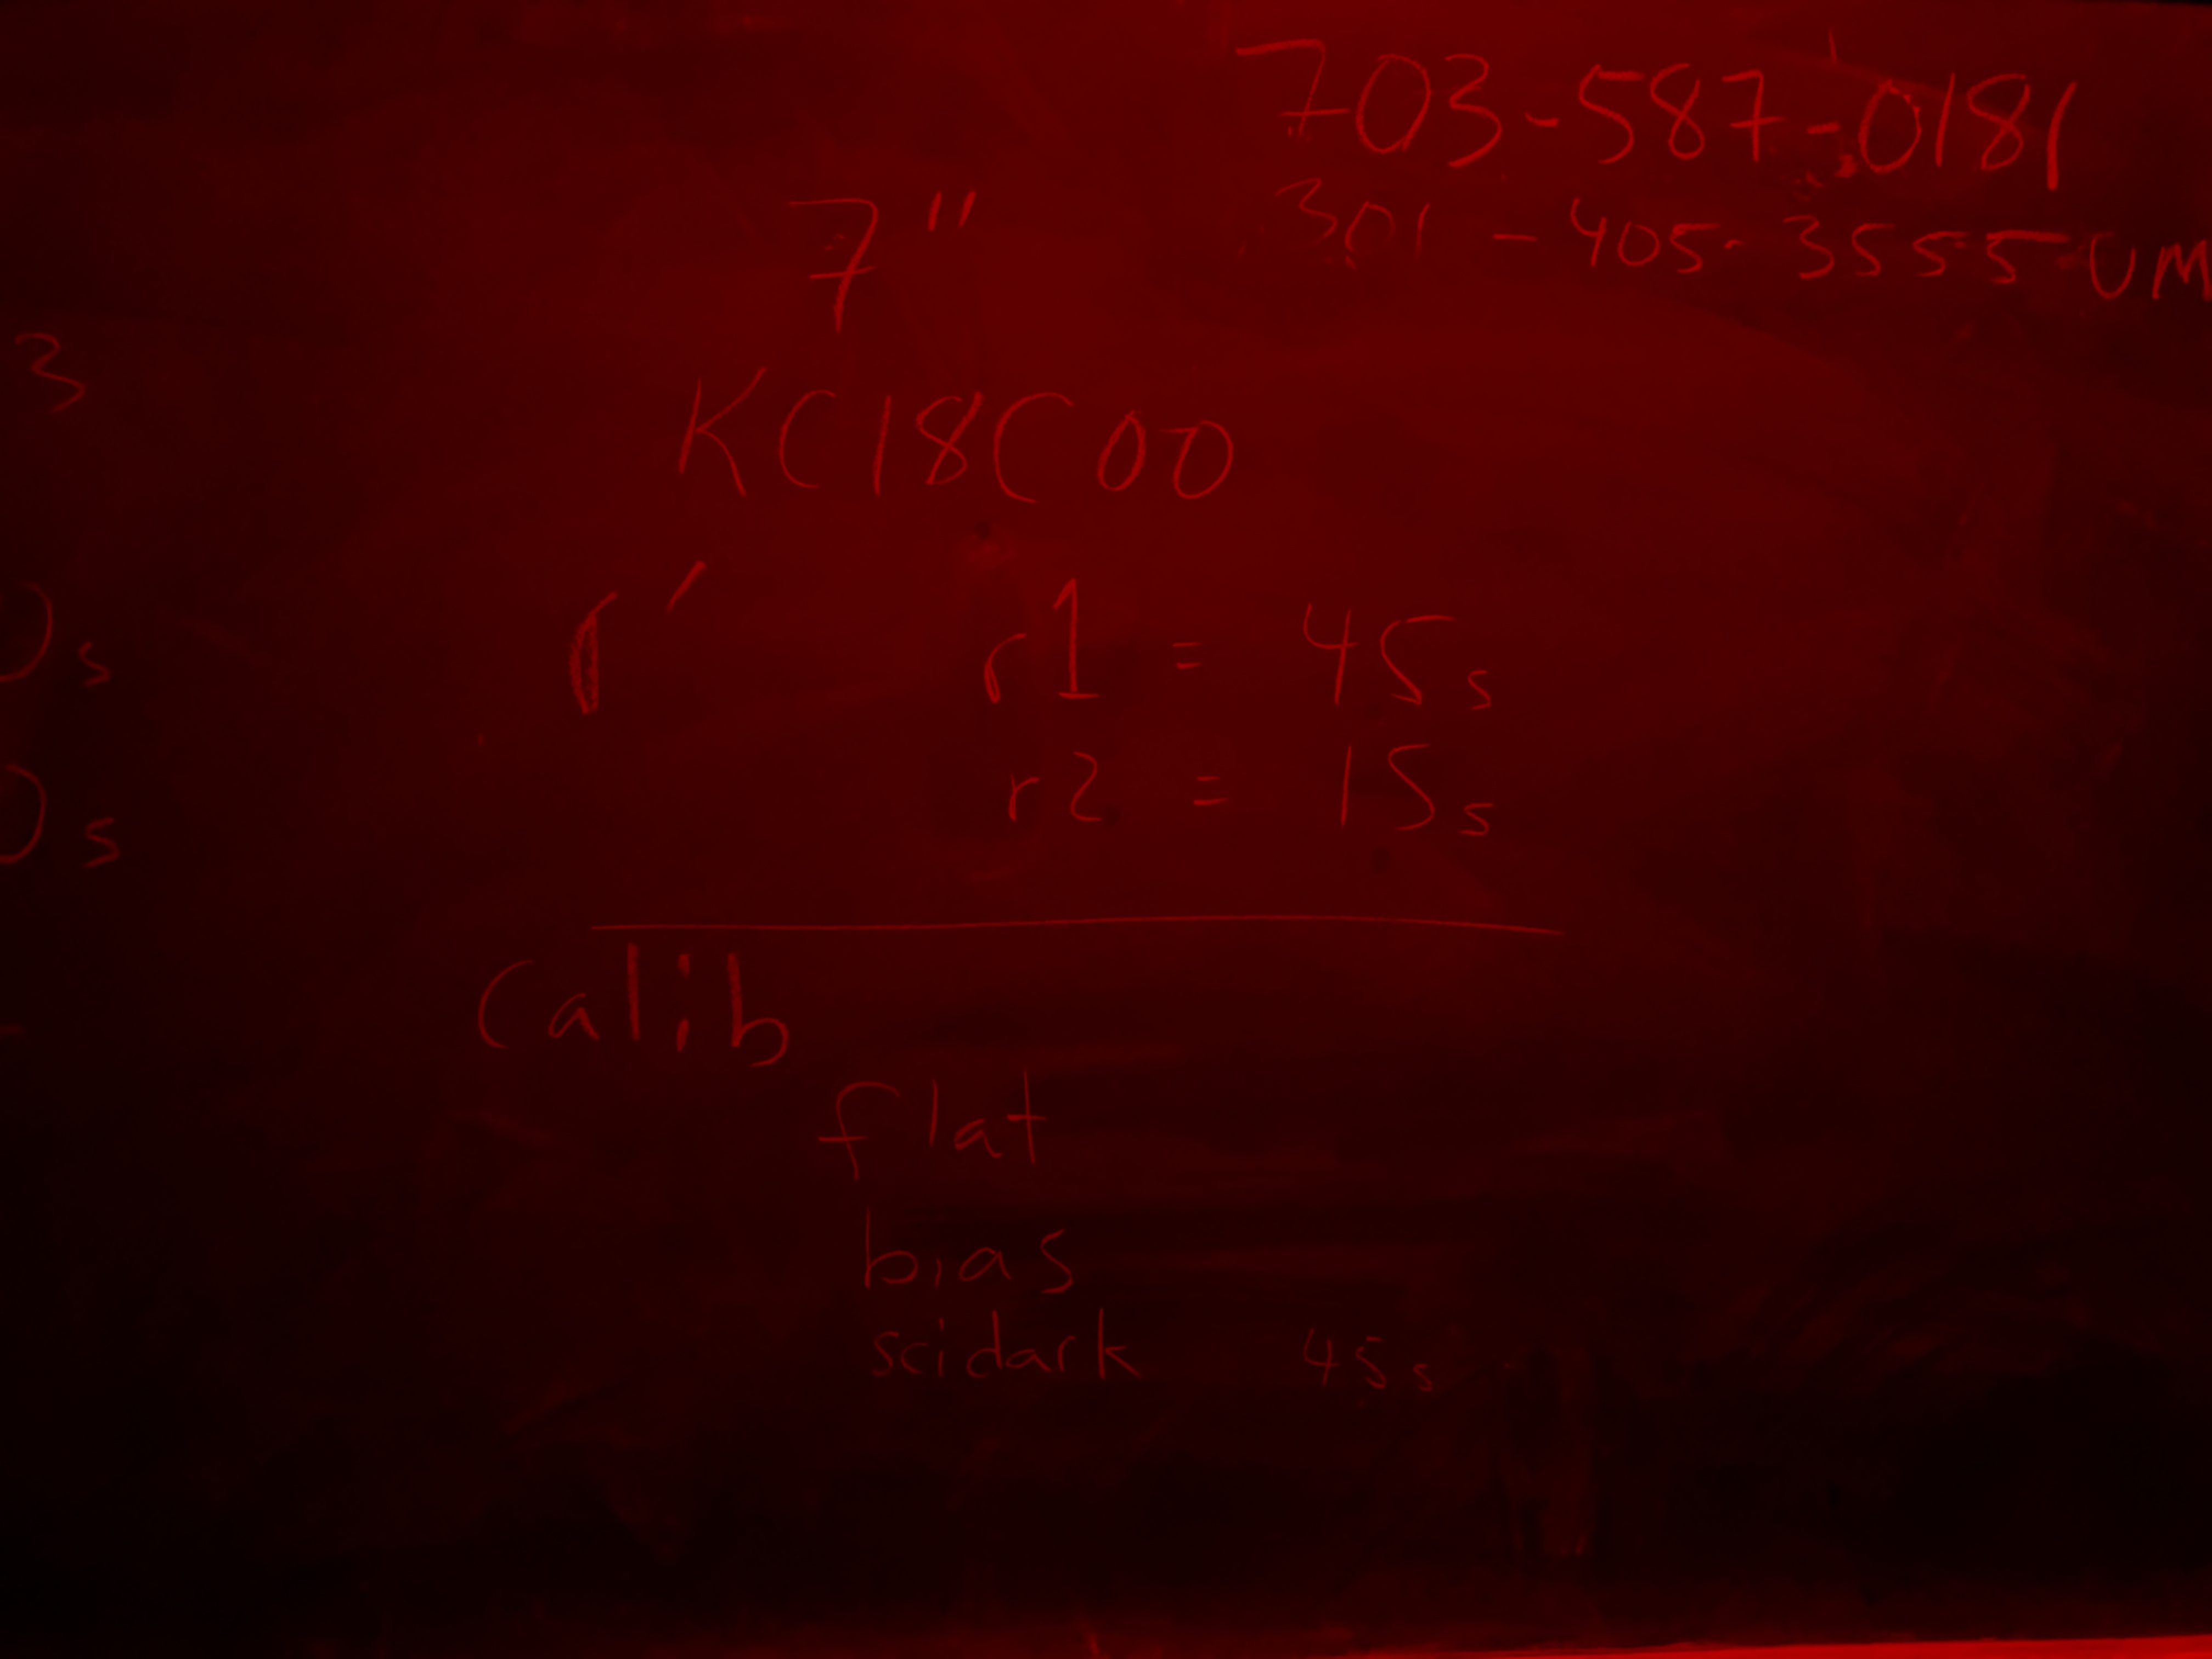 703-587-0181
301-405-3555 UM
7"
3
KC18C00
r' r1 = 45s
s
r2 = 15s
s
Calib
flat
bias
scidark 45s